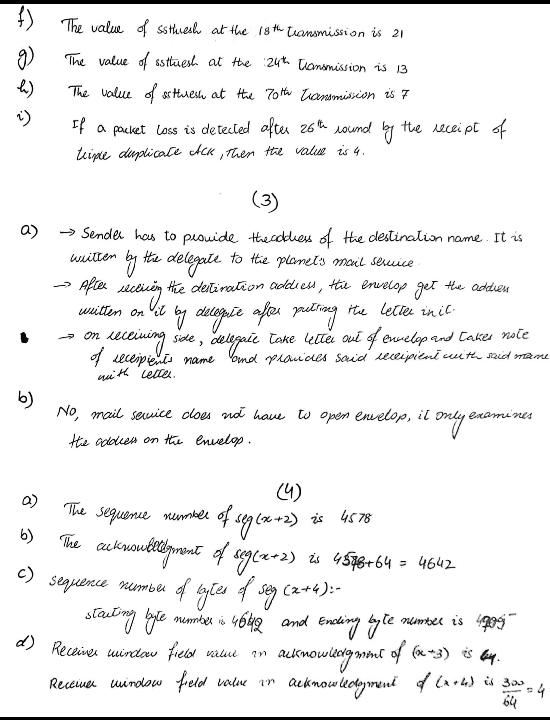 f) The value of ssthresh at the 18th transmission is 21
g) The value of ssthresh at the 24th transmission is 13
h) The value of ssthresh at the 70th transmission is 7
i) If a packet loss is detected after 26th round by the receipt of
triple duplicate ACK, then the value is 4.
(3)
a) → Sender has to provide the address of the destination name. It is
written by the delegate to the planet's mail service.
→ After receiving the destination address, the envelop get the address
written on it by delegate after putting the letter in it.
→ on receiving side, delegate take letter out of envelop and takes note
of receipients name and provides said receipient with said name
with letter.
b) No, mail service does not have to open envelop, it only examines
the address on the envelop.
(4)
a) The sequence number of seg(x+2) is 4578
b) The acknowledgment of seg(x+2) is 4578+64 = 4642
c) sequence number of bytes of seg (x+4):-
starting byte number is 4642 and Ending byte number is
d) Receiver window field value in acknowledgment of (x+3) is 64.
Receiver window field value in acknowledgment of (x+4) is 300/64 = 4